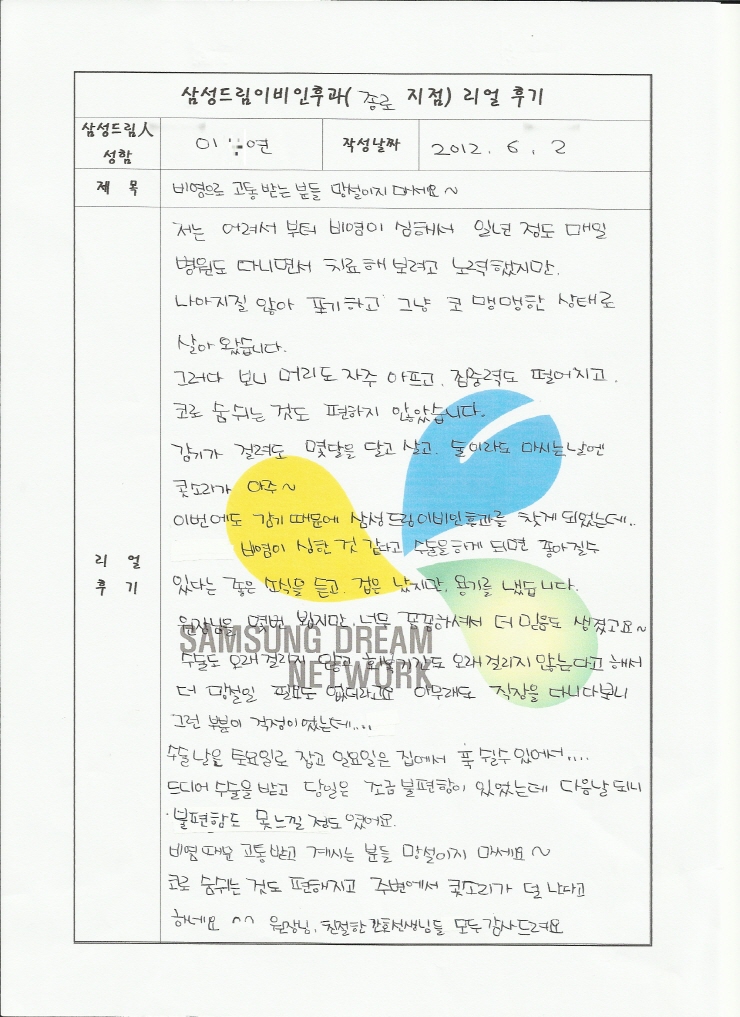 삼성드림이비인후과( 종로 지점) 리얼 후기
삼성드림人
성함
이 연
작성날짜
2012. 6. 2
제 목
비염으로 고통 받는 분들 망설이지 마세요~
리 얼
후 기
저는 어려서 부터 비염이 심해서 일년 정도 매일
병원도 다니면서 치료해 보려고 노력했지만.
나아지질 않아 포기하고 그냥 코 맹맹한 상태로
살아 왔습니다.
그러다 보니 머리도 자주 아프고, 집중력도 떨어지고.
코로 숨쉬는 것도 편하지 않았습니다.
감기가 걸려도 몇달을 달고 살고. 술이라도 마시는날엔
콧소리가 아주~
이번에도 감기 때문에 삼성드림이비인후과를 찾게 되었는데..
비염이 심한 것 같다고 수술을하게 되면 좋아질수
있다는 좋은 소식을 듣고. 겁은 났지만, 용기를 냈습니다.
원장님을 몇번 뵙지만, 너무 꼼꼼하셔서 더 믿음도 생겼고요~
SAMSUNG DREAM
NETWORK
수술도 오래 걸리지 않고 회복기간도 오래 걸리지 않는다고 해서
더 망설일 필요도 없더라고요 아무래도 직장을 다니다보니
그런 부분이 걱정이었는데....
수술날을 토요일로 잡고 일요일은 집에서 푹 쉴수 있어서....
드디어 수술을 받고 당일은 조금 불편함이 있었는데 다음날 되니
불편함도 못느낄 정도 였어요.
비염 때문 고통받고 계시는 분들 망설이지 마세요~
코로 숨쉬는 것도 편해지고 주변에서 콧소리가 덜 난다고
하네요 ^^ 원장님, 친절한 간호선생님들 모두 감사드려요